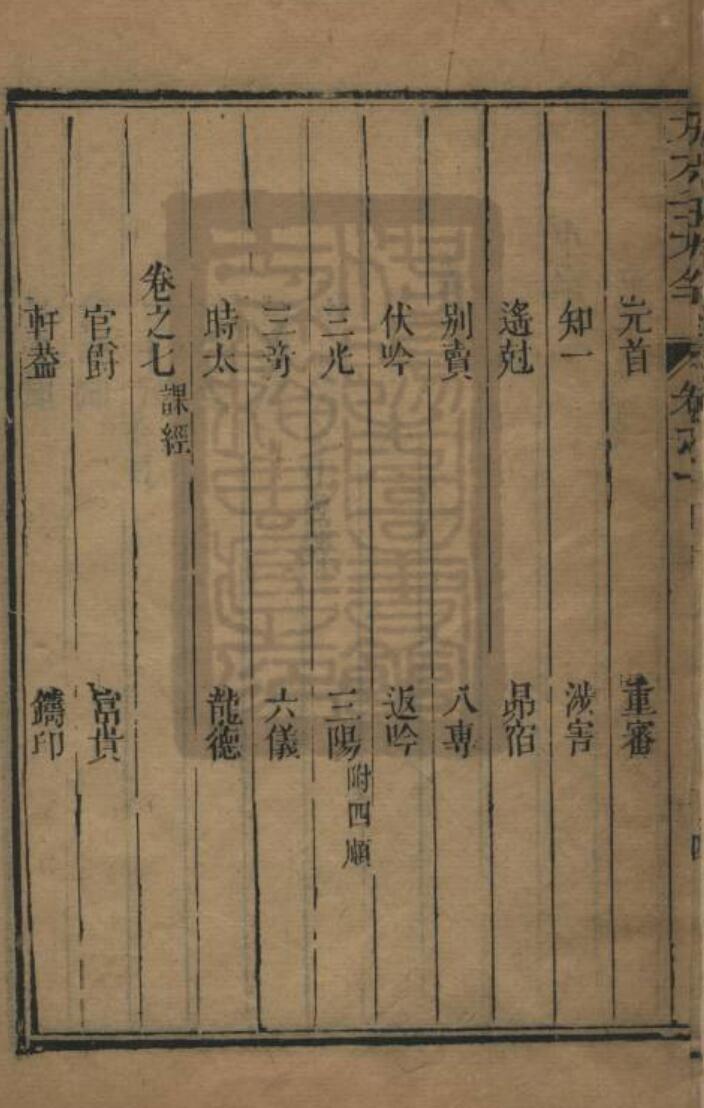 元首 重審
知一 涉害
遙尅 昴宿
别責 八專
伏吟 返吟
三光 三陽 附四順
三竒 六儀
時太 龍德
卷之七 課經
官爵 富貴
軒葢 鑄印